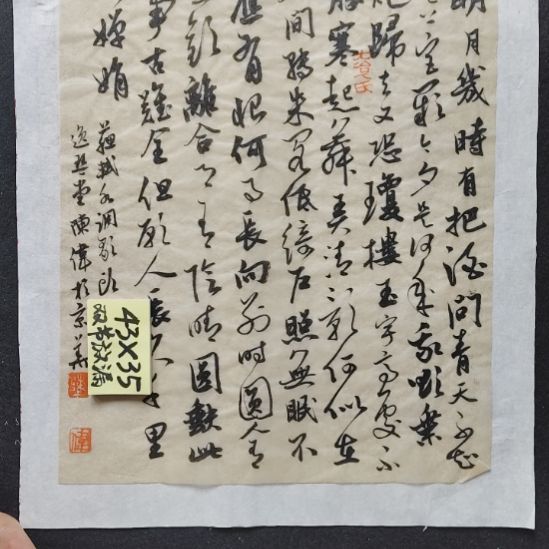 明月幾時有把酒問青天不知
上宮闕今夕是何年我欲乘
歸去又恐瓊樓玉宇高處不
勝寒起舞弄清影何似在
間轉朱閣低綺户照無眠不
應有恨何事長向别時圓人有
歡離合月有陰晴圓缺此
事古難全但願人長久千里
嬋娟
蘇軾水調歌頭
陳偉於京華
43X35